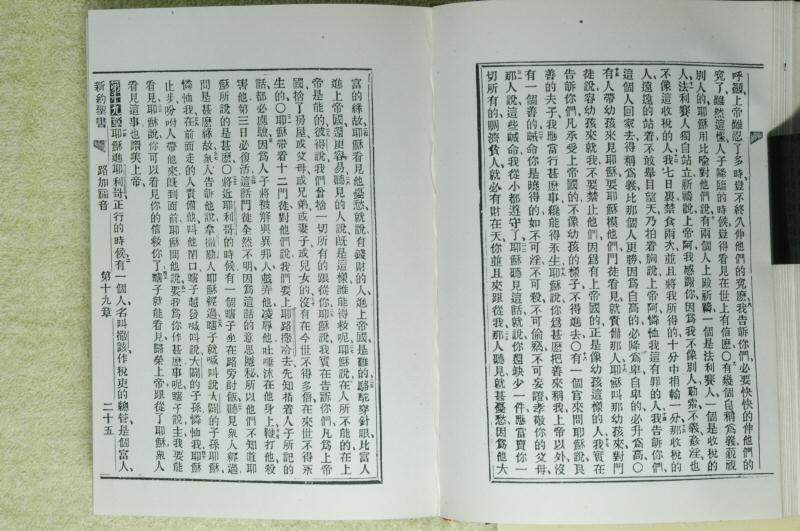 呼籲上帝雖忍了多時、豈不終久伸他們的寃麽、我告訴你們、必要快快的伸他們的
寃了、雖然這樣、人子降臨的時候、豈得看見在世上有信麽○有幾個自稱爲義、藐視
別人的、耶穌用比喩對他們說、有兩個人上殿祈禱、一個是法利賽人、一個是收稅的
人、法利賽人獨自站立祈禱說、上帝阿、我感謝你、因爲我不像別人勒索不義姦淫、也
不像這收稅的人、我七日裏禁食兩次、並且將我所得的十分中捐輸一分、那收稅的
人、遠遠的站着、不敢舉目望天、乃拍着胸說、上帝阿、憐恤我這有罪的人、我告訴你們、
這個人回家去、得稱爲義、比那個人更勝、因爲自高的必降爲卑、自卑的必升爲高○
有人帶幼孩來見耶穌、要耶穌摸他們、門徒看見就責備那人、耶穌叫那幼孩來、對門
徒說、容幼孩來就我、不要禁止他們、因爲有上帝國的、正是像幼孩這樣的人、我實在
告訴你們、凡承受上帝國的、不像幼孩的樣子、不得進去○有一個官來問耶穌說、良
善的夫子、我應當行甚麽事、纔能得永生、耶穌說、你爲甚麽把善來稱我、上帝以外沒
有一個善的、誡命你是曉得的、如不可淫、不可殺、不可偷竊、不可妄證、孝敬你的父母、
那人說、這些誡命我從小都遵守了、耶穌聽見這話、就說、你還缺少一件、應當賣你一
切所有的、賙濟貧人、就必有財在天、你並且來跟從我、那人聽見就甚憂愁、因爲他大
富的緣故、耶穌看見他憂愁、就說、有錢財的人、進上帝國是難的、駱駝穿針眼、比富人
進上帝國還更容易、聽見的人說、旣是這樣、誰能得救呢、耶穌說、在人所不能的、在上
帝是能的、彼得說、我們曾捨一切所有的跟從你、耶穌說、我實在告訴你們、凡爲上帝
國捨了房屋、或父母、或兄弟、或妻子、或兒女的、沒有在今世不得多倍、在來世不得永
生的○耶穌帶着十二門徒、對他們說、我們要上耶路撒冷去、先知指着人子所記的
話都必應驗、因爲人子將被解與異邦人、戲弄他、凌辱他、吐唾沫在他身上、鞭打他、殺
害他、第三日必復活、這話門徒全然不明、因爲這話的意思隱秘、所以他們不知道耶
穌所說的是甚麽○將近耶利哥的時候、有一個瞎子坐在路旁討飯、聽見衆人經過、
問是甚麽緣故、衆人告訴他說、拿撒勒人耶穌經過、瞎子就喊叫說、大闢的子孫耶穌、
憐恤我、在前面走的人責備他、叫他閉口、瞎子越發喊叫說、大闢的子孫憐恤我、耶穌
止步、吩咐人帶他來、旣到面前、耶穌問他說、要我爲你作甚麽事呢、瞎子說、主我要能
看見、耶穌說、你可以看見、你的信救你了、瞎子就能看見、歸榮上帝、跟從了耶穌、衆人
看見這事、也讚美上帝、
第十九章耶穌進耶利哥、正行的時候、有一個人、名叫撒該、作稅吏的總管、是個富人、
新約聖書
路加福音
第十九章
二十五